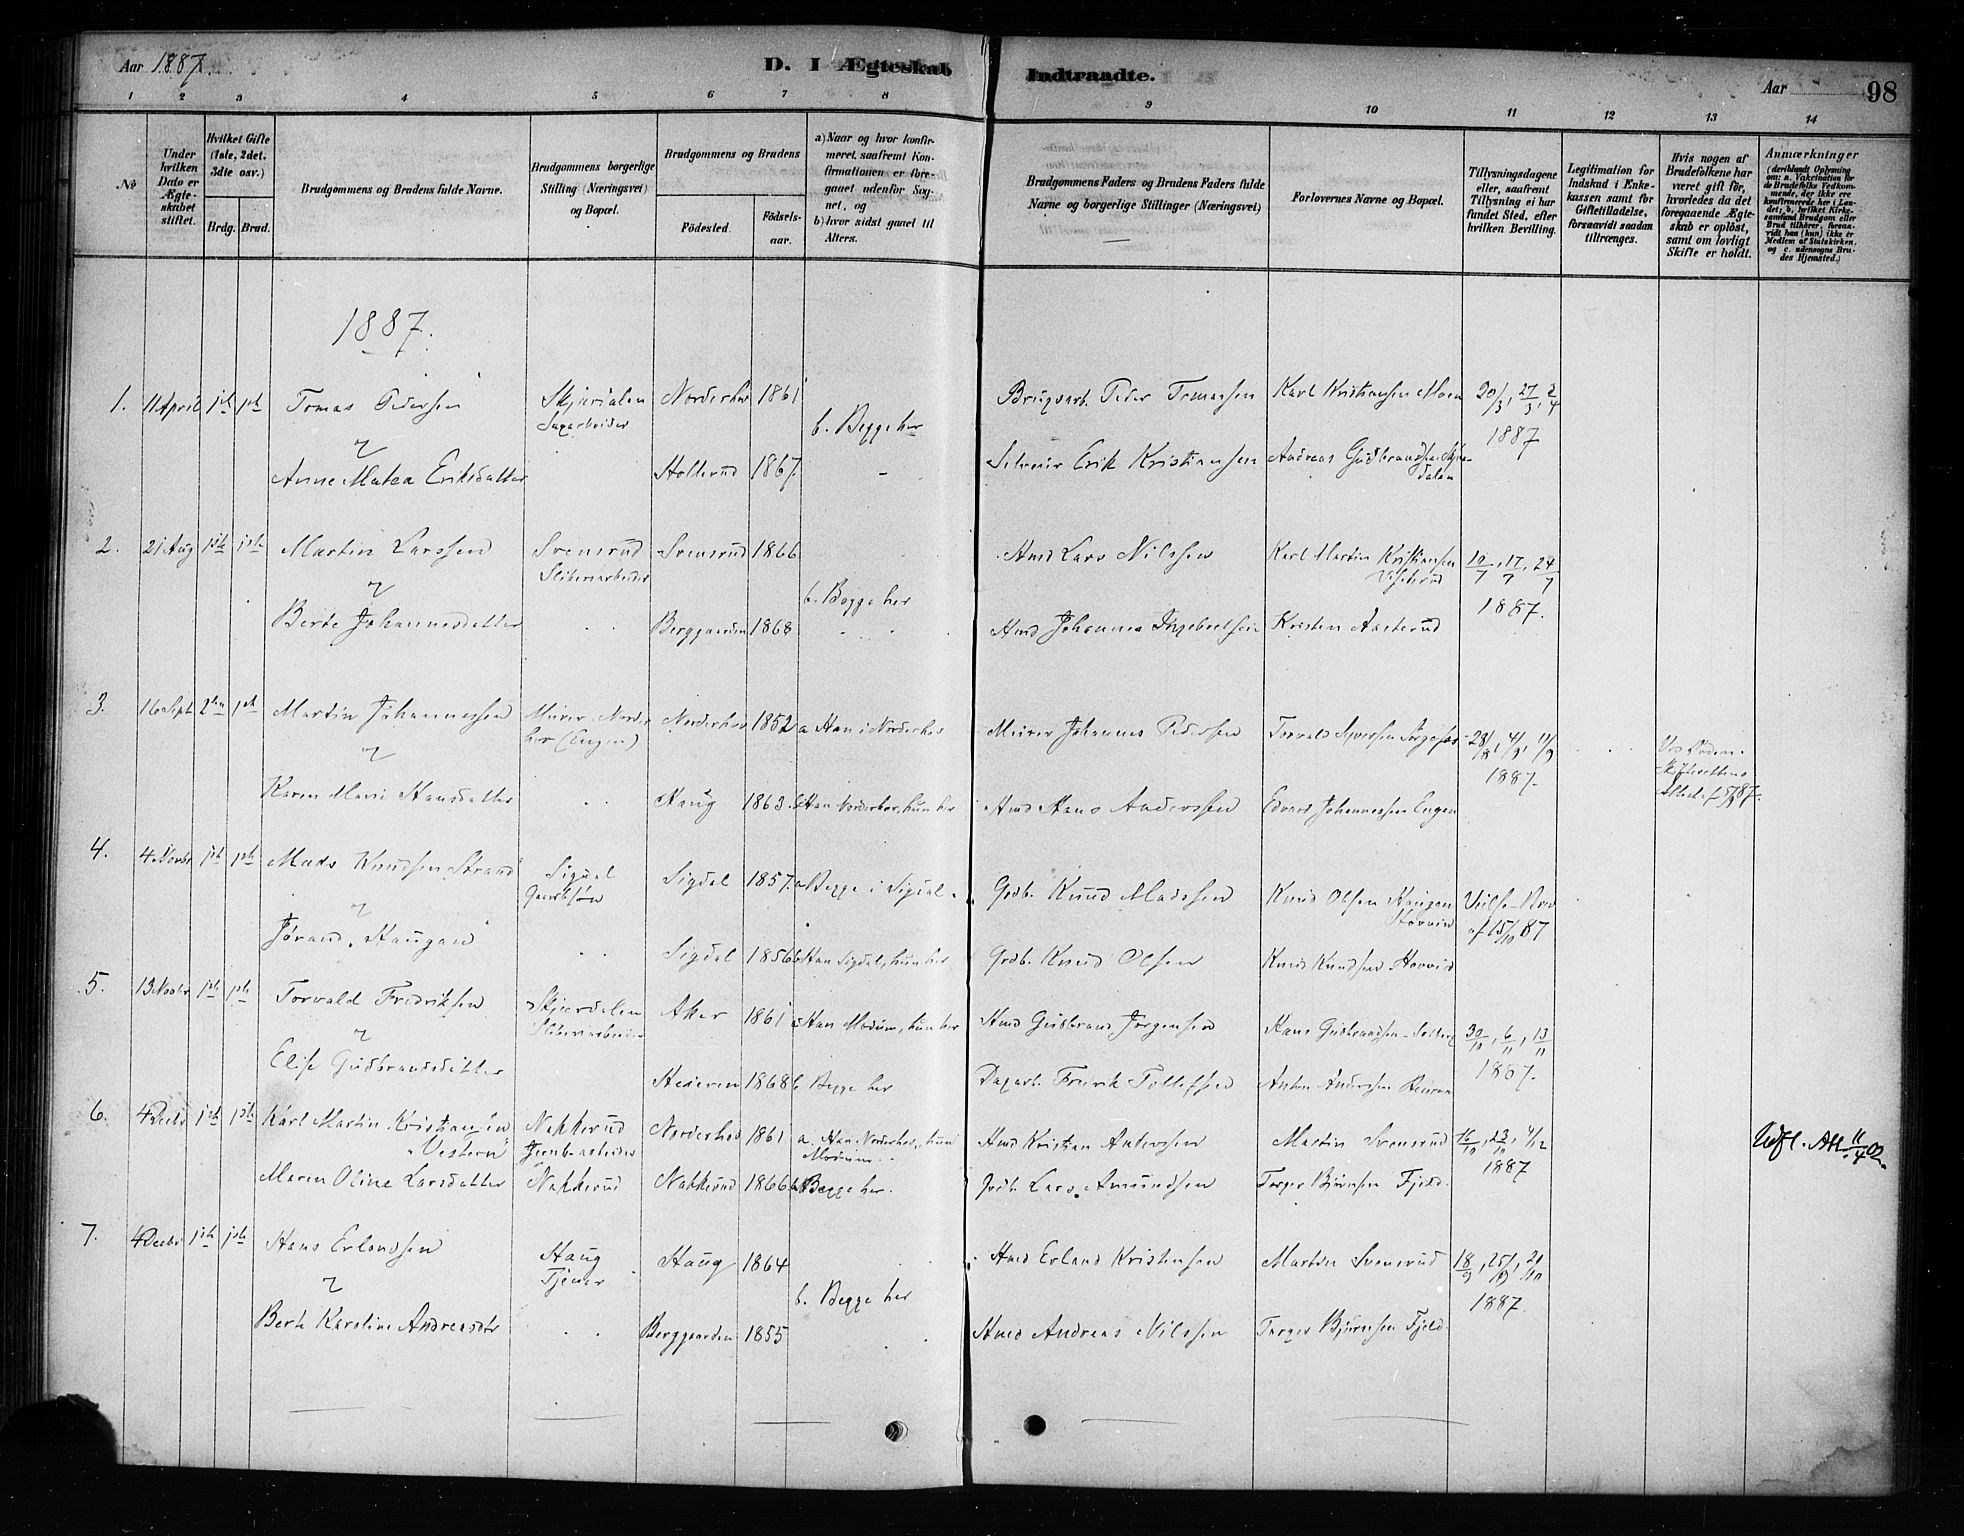 Aar 1887.
D. I Ægteskab Indtraadte.
Aar
98
1 2 3 4 5 6 7 8 9 10 11 12 13 14
No
Under hvilken Dato er Ægteskabet stiftet.
Hvilket Gifte (1ste, 2det, 3dte osv.)
Brdg. Brud.
Brudgommens og Brudens fulde Navne.
Brudgommens borgerlige Stilling (Næringsvei) og Bopæl.
Brudgommens og Brudens
Födested.
Födselsaar.
a) Naar og hvor konfirmeret, saafremt Konfirmationen er foregaaet udenfor Sognet, og
b) hvor sidst gaaet til Alters.
Brudgommens Faders og Brudens Faders fulde Navne og borgerlige Stillinger (Næringsvei)
Forlovernes Navne og Bopæl.
Tillysningsdagene eller, saafremt Tillysning ei har fundet Sted, efter hvilken Bevilling.
Legitimation for Indskud i Enkekassen samt for Giftetilladelse, forsaavidt saadan tiltrænges.
Hvis nogen af Brudefolkene har været gift för, hvorledes da det foregaaende Ægteskab er oplöst, samt om lovligt Skifte er holdt.
Anmærkninger
(deriblandt Oplysning om: a. Vakcination for de Brudefolks Vedkommende, der ikke ere konfirmerede her i Landet; b. hvilket Kirkesamfund Brudgom eller Brud tilhörer, forsaavidt han (hun) ikke er Medlem af Statskirken, og c. udensogns Brudes Hjemsted.)
1887.
1. 11 April 1ste 1ste Tomas Pedersen Skjærdalen Norderhov 1861 Brugsarb. Peder Tomassen Karl Kristiansen Moen 20/3, 27/3, 2/4
Sagarbeider b. Begge her 1887
&
Anne Matea Eriksdatter Hollerud 1867. - Erik Kristiansen Andreas Gudbrandsen Skjærdalen
2. 21 Aug 1ste 1ste Martin Larssen Svensrud Svensrud 1866 Hmd Lars Nilssen Karl Martin Kristiansen 10/7, 17/7, 24/7
Sliberiarbeider b. Begge her 1887.
&
Berte Johannesdatter Berggaarden 1868 Hmd Johannes Ingebretsen Kristen Aasterud
3. 16 Sept 2den 1ste Martin Johannessen Murer, Norderhov (Engen) Norderhov 1852 a Han i Norderhov Murer Johannes Pedersen Torvald Syversen 28/8, 4/9, 11/9
& 1887.
Karen Marie Hansdatter Haug 1863 b Han Norderhov, hun her Hmd Hans Anderssen Edvard Johannessen Engen
4. 4 Novbr 1ste 1ste Mads Knudsen Strand Sigdal Sigdal 1857. a Begge i Sigdal. Grdb. Knud Madssen Knud Olsen Haugen
& af 15/10 87
Jørand Haugan Sigdal 1856 b Han Sigdal, hun her Grdb. Knud Olsen Knud Knudsen Hovvid
5. 13 Novbr 1ste 1ste Torvald Fredriksen Skjærdalen Aker 1861 a Han Modum, hun her Hmd Gudbrand Jørgensen Hans Gudbrandsen 30/10, 6/11, 13/11
Sliberiarbeider 1887.
&
Elise Gudbrandsdatter 1868 b Begge her Dagarb. Fredrik Tollefsen Anton Anderssen
6. 4 Decbr 1ste 1ste Karl Martin Kristiansen Nakkerud Norderhov 1861 a. Han Norderhov, hun Modum. Hmd Kristian Martin Svensrud 16/10, 23/10, 4/12
"Vestern" Jernb-arbeider 1887
Maren Oline Larsdatter Nakkerud Nakkerud 1866 b Begge her. Grdb. Lars Amundsen Torger Bjørnsen Fjeld. Udfl. Att. 11/4 02.
7. 4 Decbr 1ste 1ste Hans Erlandsen Haug Haug 1864 Hmd Erland Kristensen Martin Svensrud 18/9, 25/9, 20/10
Tjener b. Begge her 1887.
&
Berte Karoline Andreasdtr Berggaarden 1855 Hmd Andreas Nilssen Torger Bjørnsen Fjeld.